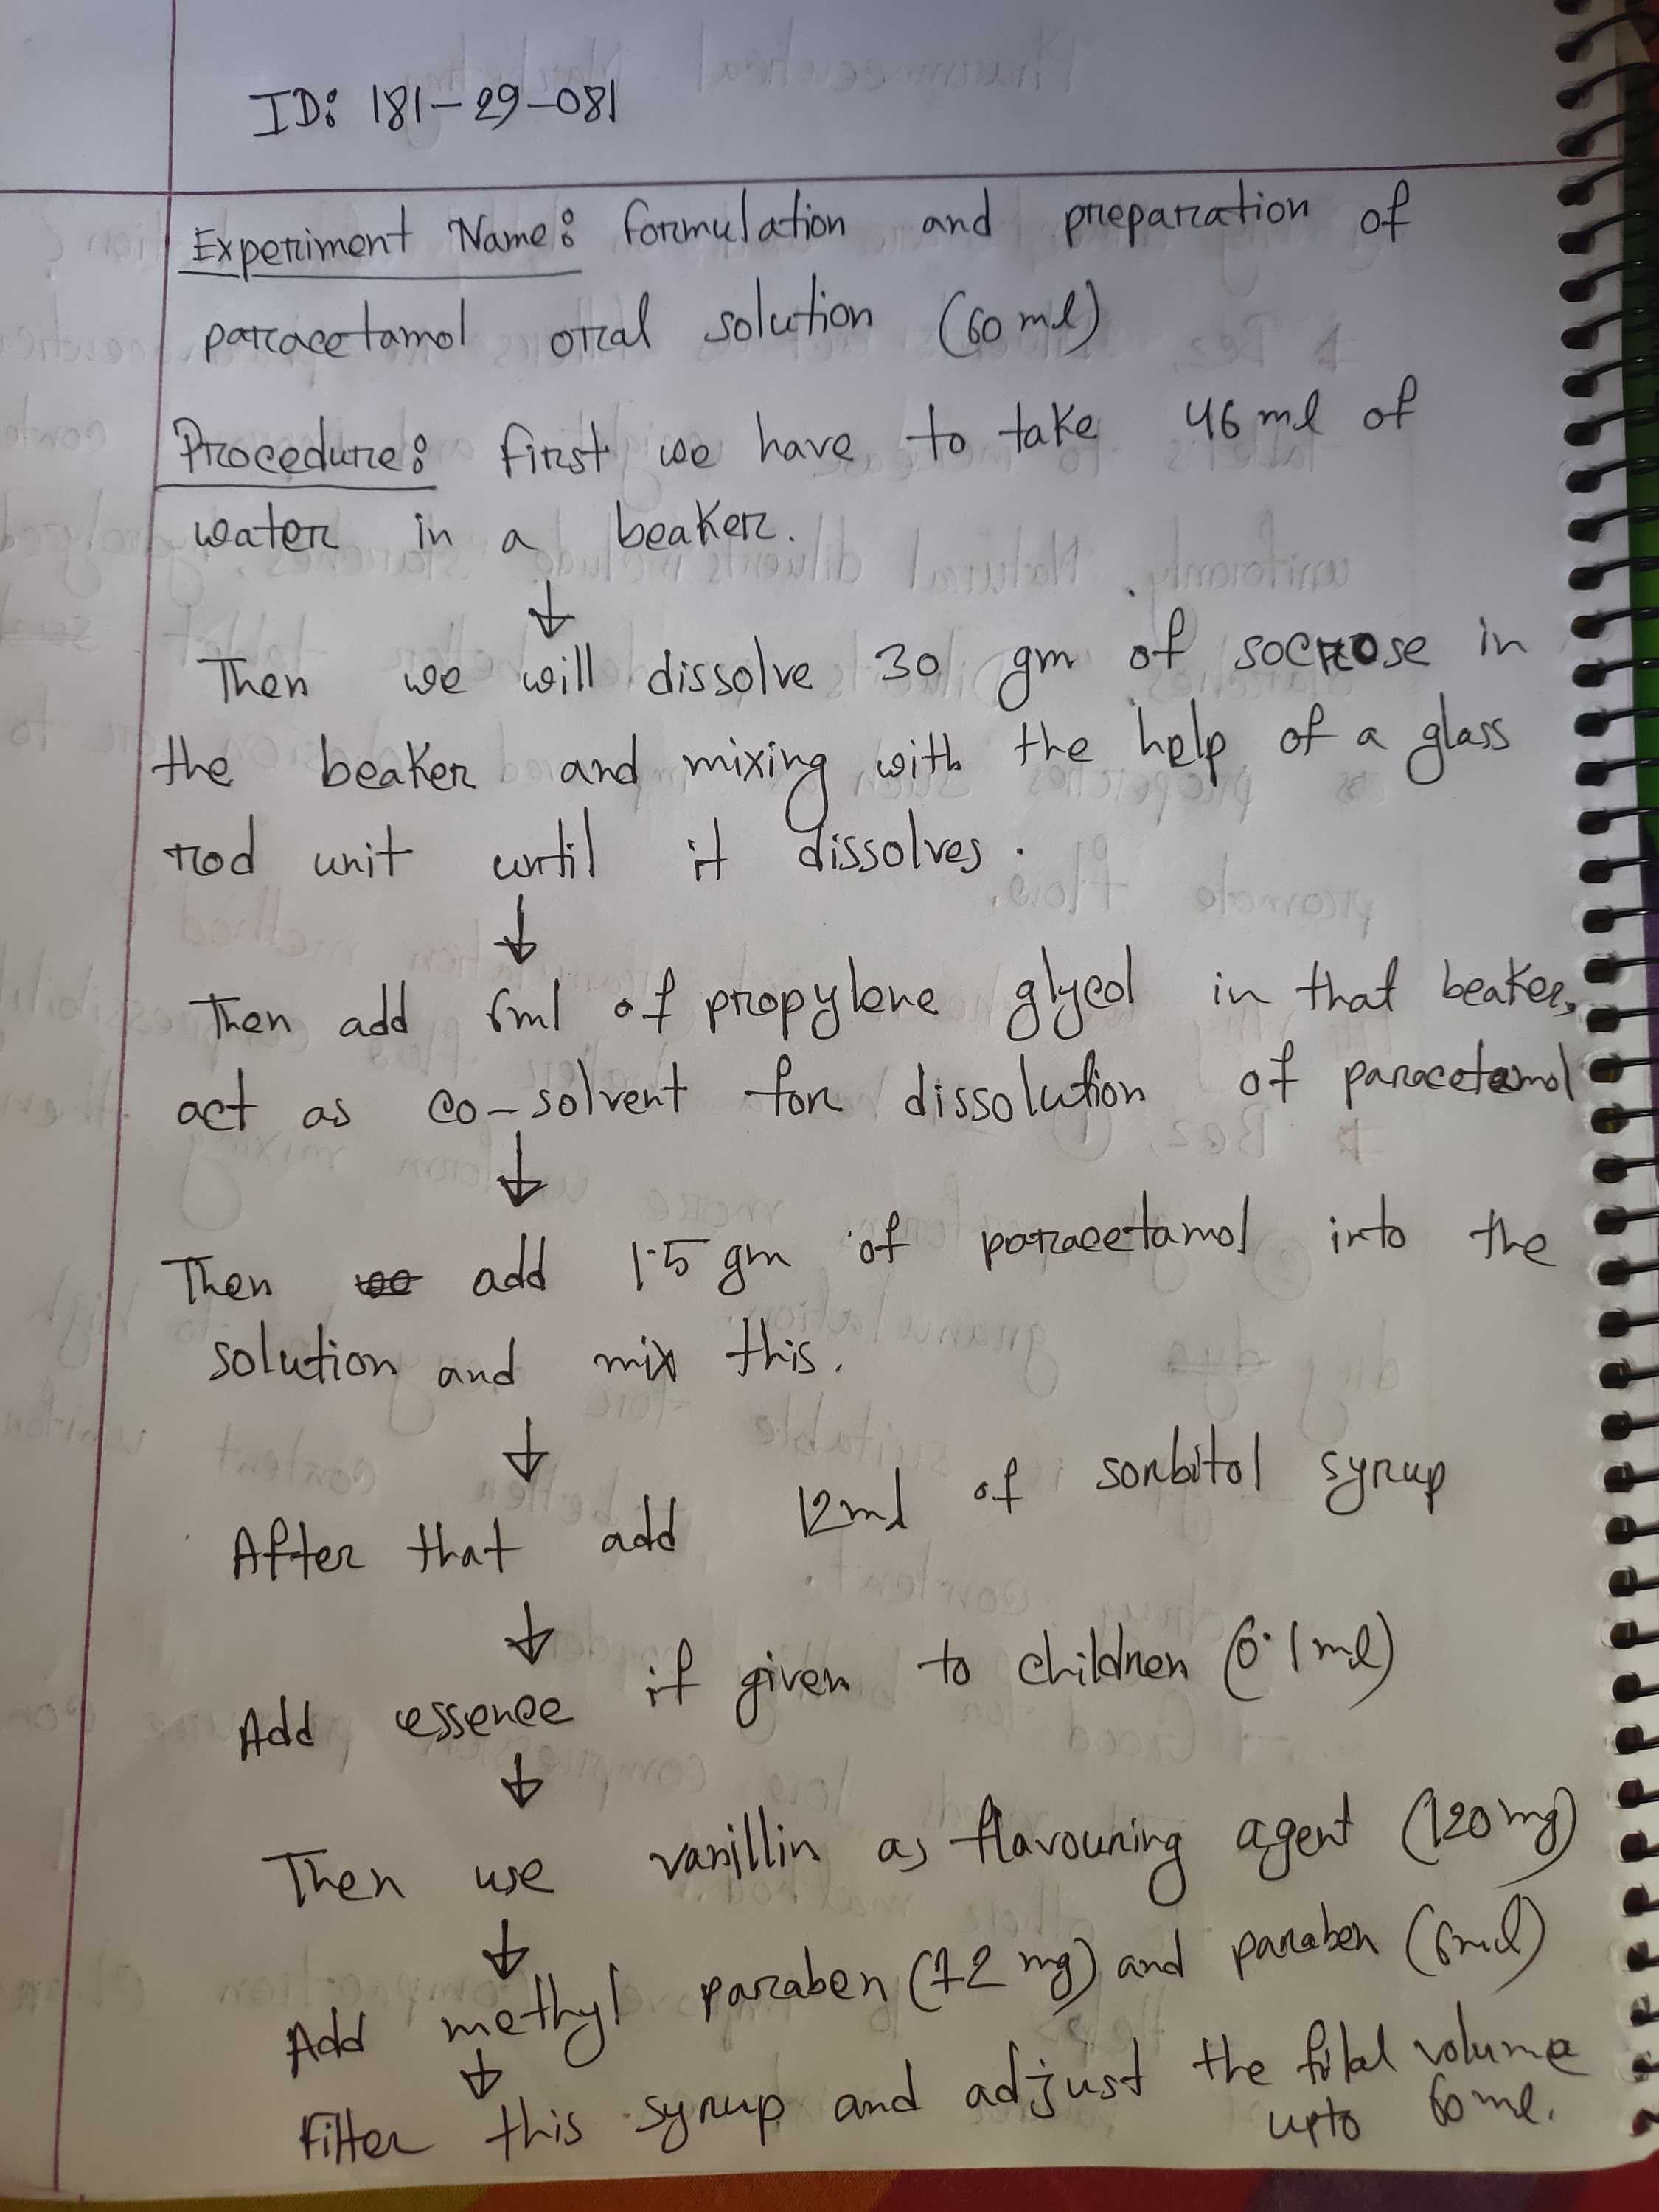 ID: 181-29-081
Experiment Name: Formulation and preparation of
paracetamol oral solution (60 ml)
Procedure: First we have to take 46 ml of
water in a beaker.
↓
Then we will dissolve 30 gm of socrose in
the beaker and mixing with the help of a glass
rod unit until it dissolves.
↓
Then add 6ml of propylene glycol in that beaker,
act as co-solvent for dissolution of paracetamol
↓
Then add 1.5 gm of paracetamol into the
solution and mix this.
↓
After that add 12ml of sorbitol syrup
↓
Add essence if given to children (0.1 ml)
↓
Then use vanillin as flavouring agent (120 mg)
↓
Add methyl paraben (72 mg) and paraben (6ml)
↓
Filter this syrup and adjust the volume
upto 60 ml.